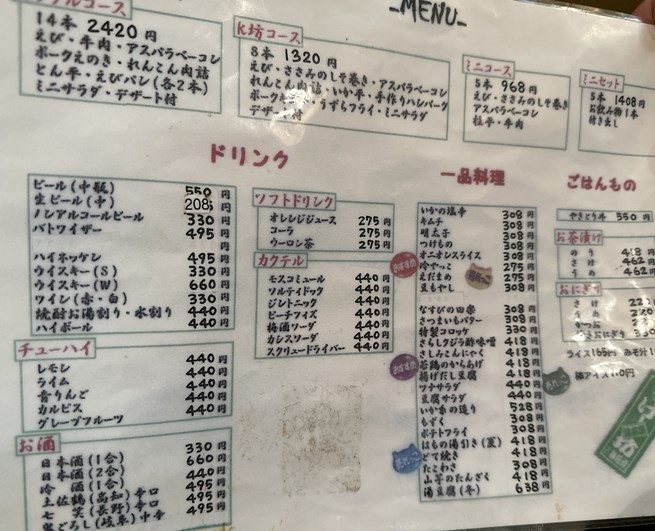 -MENU-
14本 2420円
えび・牛肉・アスパラベーコン
ポークえのき・れんこん肉詰
とん平・えびパン(各2本)
ミニサラダ・デザート付
K坊コース
8本 1320円
えび・ささみのしそ巻き・アスパラベーコン
れんこん肉詰・いか平・手作りハンバーグ
うずらフライ・ミニサラダ
デザート付
ミニコース
5本 968円
えび・ささみのしそ巻き
アスパラベーコン
牛肉
ミニセット
5本 1408円
お飲み物1本
付き出し
ドリンク
ビール(中瓶) 550円
生ビール(中) 208
ノンアルコールビール 330円
バドワイザー 495円
円
ハイネッケン 495円
ウイスキー(S) 330円
ウイスキー(W) 660円
ワイン(赤・白) 330円
焼酎お湯割り・水割り 440円
ハイボール 440円
チューハイ
レモン 440円
ライム 440円
青りんご 440円
カルピス 440円
グレープフルーツ 440円
お酒
330円
日本酒(1合) 660円
日本酒(2合) 440円
冷酒(1合) 495円
土佐鶴(高知)辛口 495円
七笑(長野)辛口 495円
鬼ごろし(岐阜)中辛
ソフトドリンク
オレンジジュース 275円
コーラ 275円
ウーロン茶 275円
カクテル
モスコミュール 440円
ソルティドック 440円
ジントニック 440円
ピーチフィズ 440円
梅酒ソーダ 440円
カシスソーダ 440円
スクリュードライバー 440円
一品料理
いかの塩辛 308円
キムチ 308円
明太子 308円
つけもの 308円
オニオンスライス 308円
おすすめ
冷やっこ 275円
えだまめ 275円
豆もやし 308円
なすびの田楽 308円
さつまいもバター 308円
特製コロッケ 330円
さらしクジラ酢味噌 418円
さしみこんにゃく 308円
おすすめ
若鶏のからあげ 418円
揚げだし豆腐 418円
ツナサラダ 440円
豆腐サラダ 440円
いか糸の造り 528円
もずく 308円
ポテトフライ 308円
はもの湯引き(夏) 418円
どて焼き 418円
たこわさ 308円
山芋のたんざく 418円
湯豆腐(冬) 638円
ごはんもの
やきとり丼 550円
お茶漬け
のり 418円
さけ 462円
うめ 462円
おにぎり
さけ
うめ
かつお
ライス165円 みそ汁